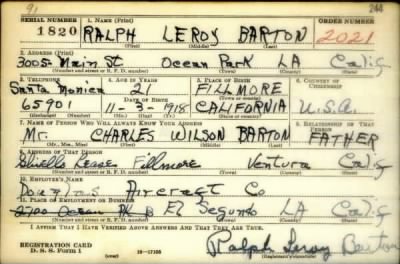 91 244
SERIAL NUMBER 1. NAME (Print) ORDER NUMBER
1820 RALPH LEROY BARTON 2021
(First) (Middle) (Last)
2. ADDRESS (Print)
3005 Main St Ocean Park LA Calif
(Number and street or R. F. D. number) (Town) (County) (State)
3. TELEPHONE 4. AGE IN YEARS 5. PLACE OF BIRTH 6. COUNTRY OF CITIZENSHIP
Santa Monica 21 FILLMORE
DATE OF BIRTH (Town or county)
65901 11-3-1918 CALIFORNIA U.S.A.
(Exchange) (Number) (Mo.) (Day) (Yr.) (State or country)
7. NAME OF PERSON WHO WILL ALWAYS KNOW YOUR ADDRESS 8. RELATIONSHIP OF THAT PERSON
Mr. CHARLES WILSON BARTON FATHER
(Mr., Mrs., Miss) (First) (Middle) (Last)
9. ADDRESS OF THAT PERSON
Fillmore Ventura Calif
(Number and street or R. F. D. number) (Town) (County) (State)
10. EMPLOYER'S NAME
Douglas Aircraft Co
11. PLACE OF EMPLOYMENT OR BUSINESS
2700 Ocean Pk B El Segundo LA Calif
(Number and street or R. F. D. number) (Town) (County) (State)
I AFFIRM THAT I HAVE VERIFIED ABOVE ANSWERS AND THAT THEY ARE TRUE.
REGISTRATION CARD
D. S. S. Form 1 (over) Ralph Leroy Barton